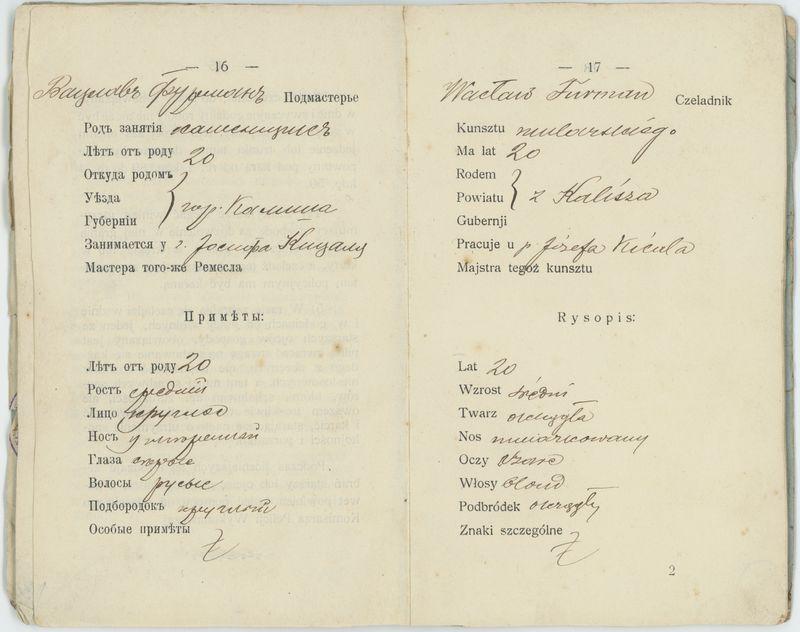 — 16 —
Вацлавъ Фурманъ Подмастерье
Родъ занятія каменщикъ
Лѣтъ отъ роду 20
Откуда родомъ
Уѣзда гор. Калиша
Губерніи
Занимается у г. Іосифа
Мастера того-же Ремесла
Примѣты:
Лѣтъ отъ роду 20
Ростъ средній
Лицо круглое
Носъ умѣренный
Глаза
Волосы русые
Подбородокъ круглый
Особые примѣты
— 17 —
Wacław Furman Czeladnik
Kunsztu mularskiego
Ma lat 20
Rodem
Powiatu z Kalisza
Gubernji
Pracuje u p Józefa
Majstra tegoż kunsztu
Rysopis:
Lat 20
Wzrost średni
Twarz okrągła
Nos umiarkowany
Oczy
Włosy blond
Podbródek okrągły
Znaki szczególne
2